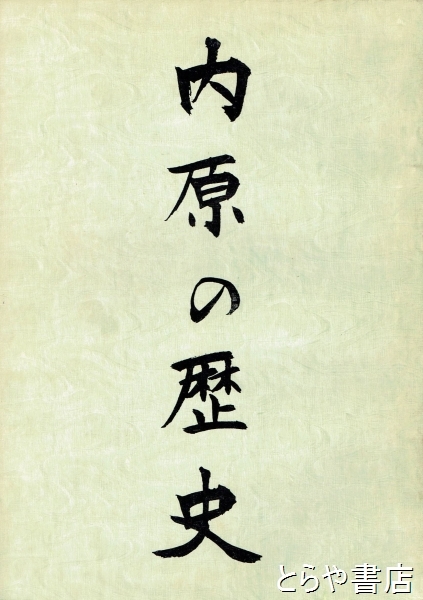 内原の歴史
とらや書店